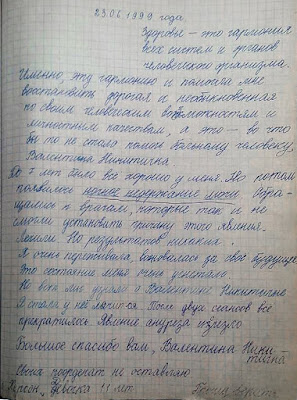 23.06.1999 года
Здоровье – это гармония
всех систем и органов
человеческого организма.
Именно, эту гармонию и помогла мне
восстановить дорогая и необыкновенная
по своим человеческим возможностям и
личностным качествам, а это – во что
бы то не стало помочь больному человеку,
Валентина Никитична.
До 7 лет было все хорошо у меня. Но потом
появилось ночное недержание мочи. Обра-
щались к врачам, которые так и не
смогли установить причину этого явления.
Лечили. Но результатов никаких.
Я очень переживала, беспокоилась за своё будущее
Это состояние меня очень угнетало.
Но вот мы узнали о Валентине Никитичне
Я стала у неё лечится. После двух сеансов все
прекратилось. Явление энуреза изчезло
Большое спасибо вам, Валентина Ники-
тична
Свои координат не оставляю
Херсон, девочка 13 лет.